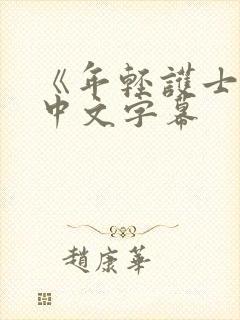 《年輕護士
中文字幕
趙康華